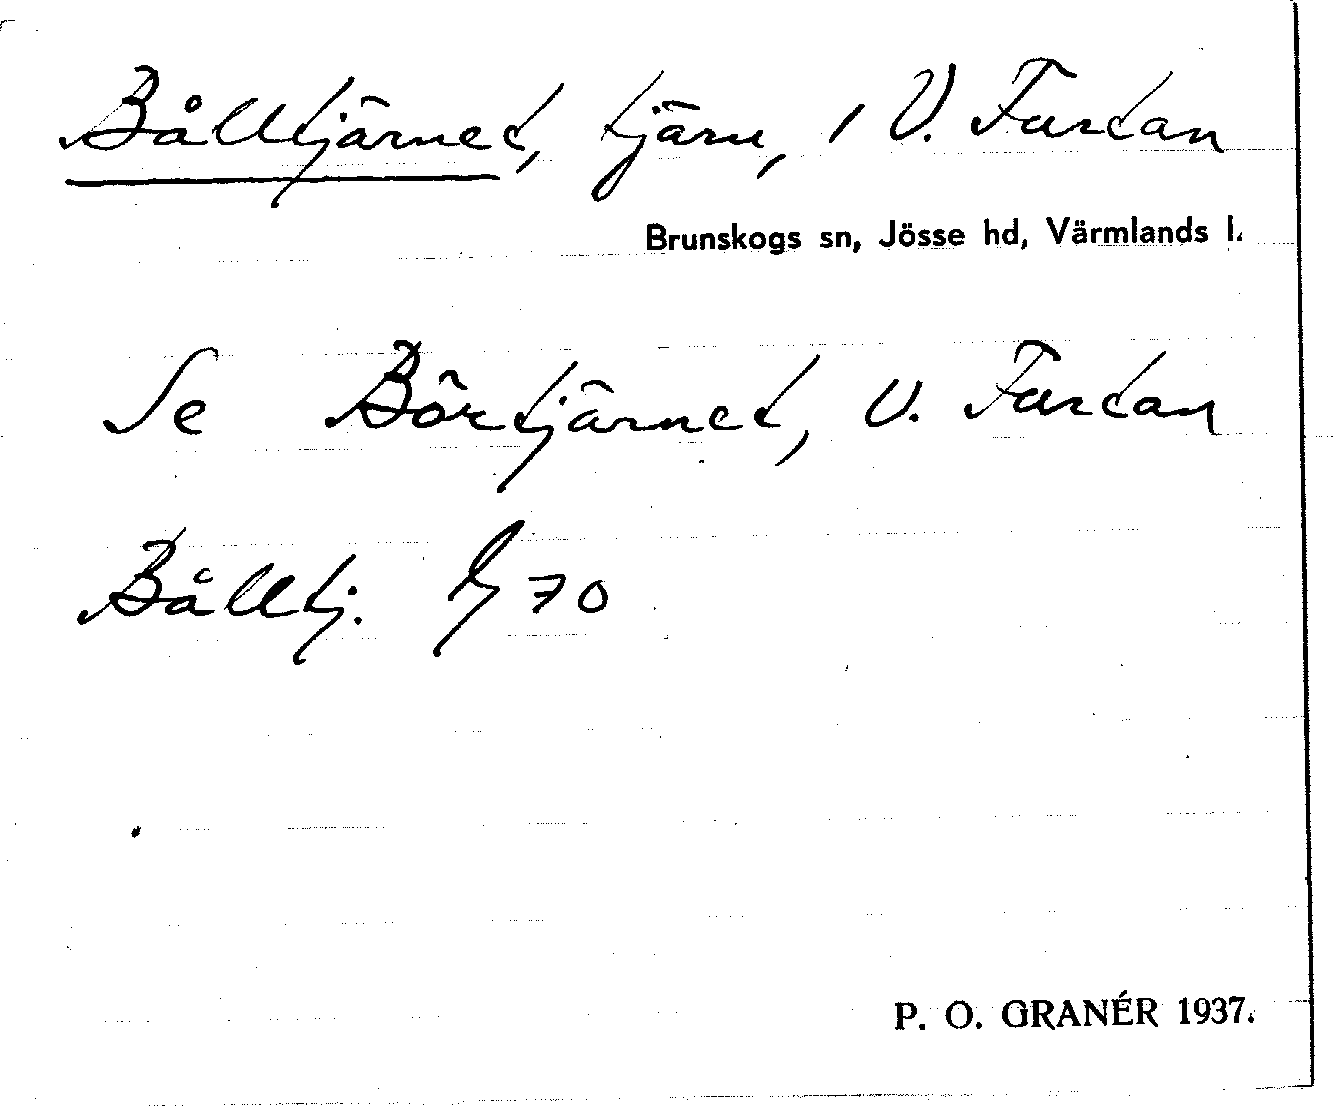 Bålltjärnet, tjärn, i V. Furtan
Brunskogs sn, Jösse hd, Värmlands l.
Se Börtjärnet, V. Furtan
Bålltj. 70
P. O. GRANÉR 1937.